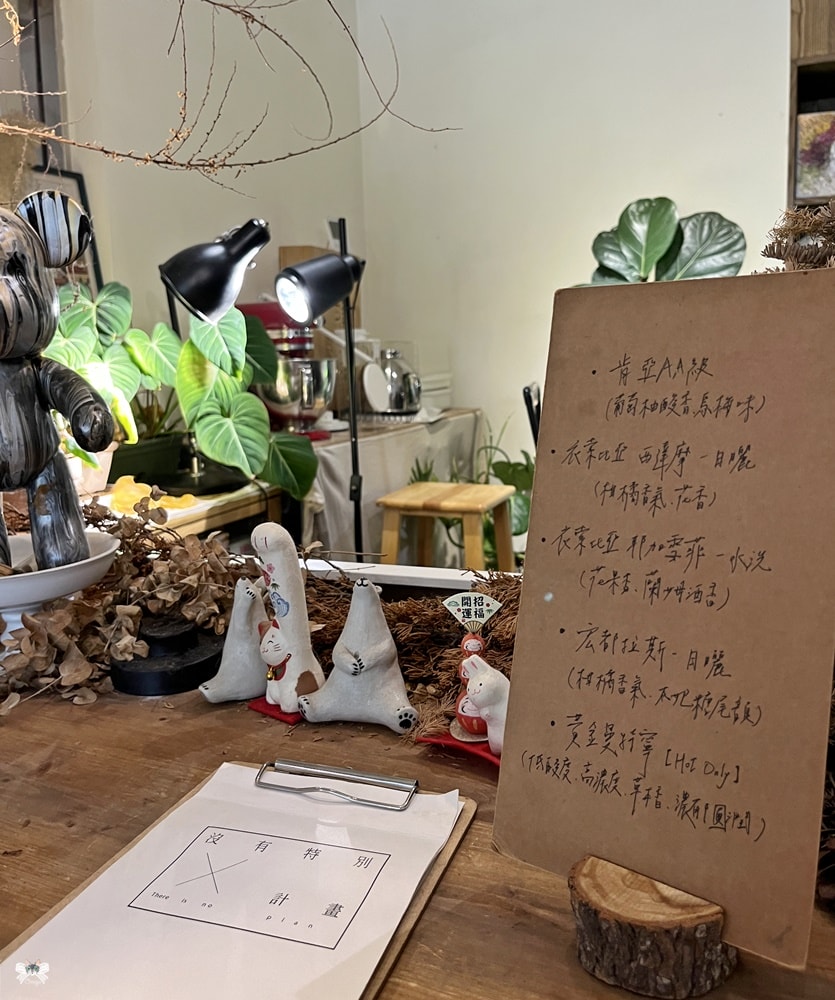 • 肯亞AA級
(葡萄柚酸香烏梅味)
• 衣索比亞 西達摩-日曬
(柑橘香氣、花香)
• 衣索比亞 耶加雪菲-水洗
(花果香、蘭姆酒香)
• 宏都拉斯-日曬
(柑橘香氣、太妃糖尾韻)
• 黃金曼特寧 [Hot Only]
(低酸度、高濃度、草香、濃郁圓潤)
招福
開運
沒有特別
計畫
There is no
plan